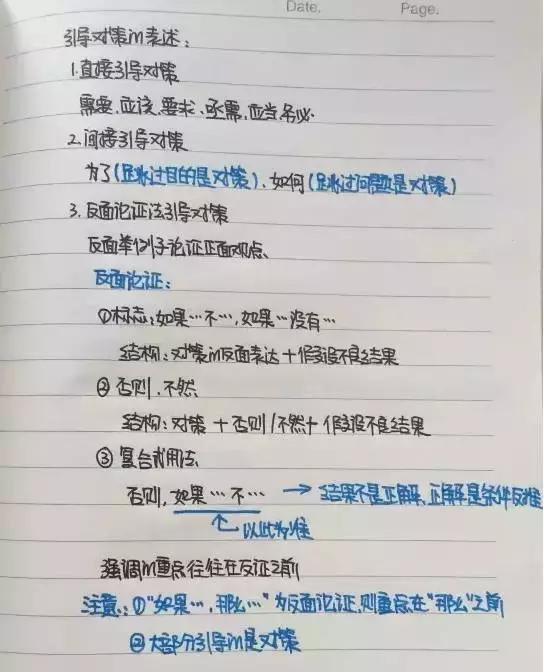 Date. Page.
引导对策的表述：
1.直接引导对策
需要、应该、要求、亟需、应当、务必.
2.间接引导对策
为了(跳过目的是对策)、如何(跳过问题是对策)
3.反面论证法引导对策
反面举例子论证正面观点、
反面论证：
①标志：如果…不…，如果…没有…
结构：对策的反面表达+假设不良结果
②否则、不然
结构：对策+否则/不然+假设不良结果
③复合式用法
否则，如果…不… → 结果不是正解、正解是条件反推
以此为准
强调的重点往往在反证之前
注意：①“如果…，那么…”为反面论证，则重点在“那么”之前
②大部分引导的是对策